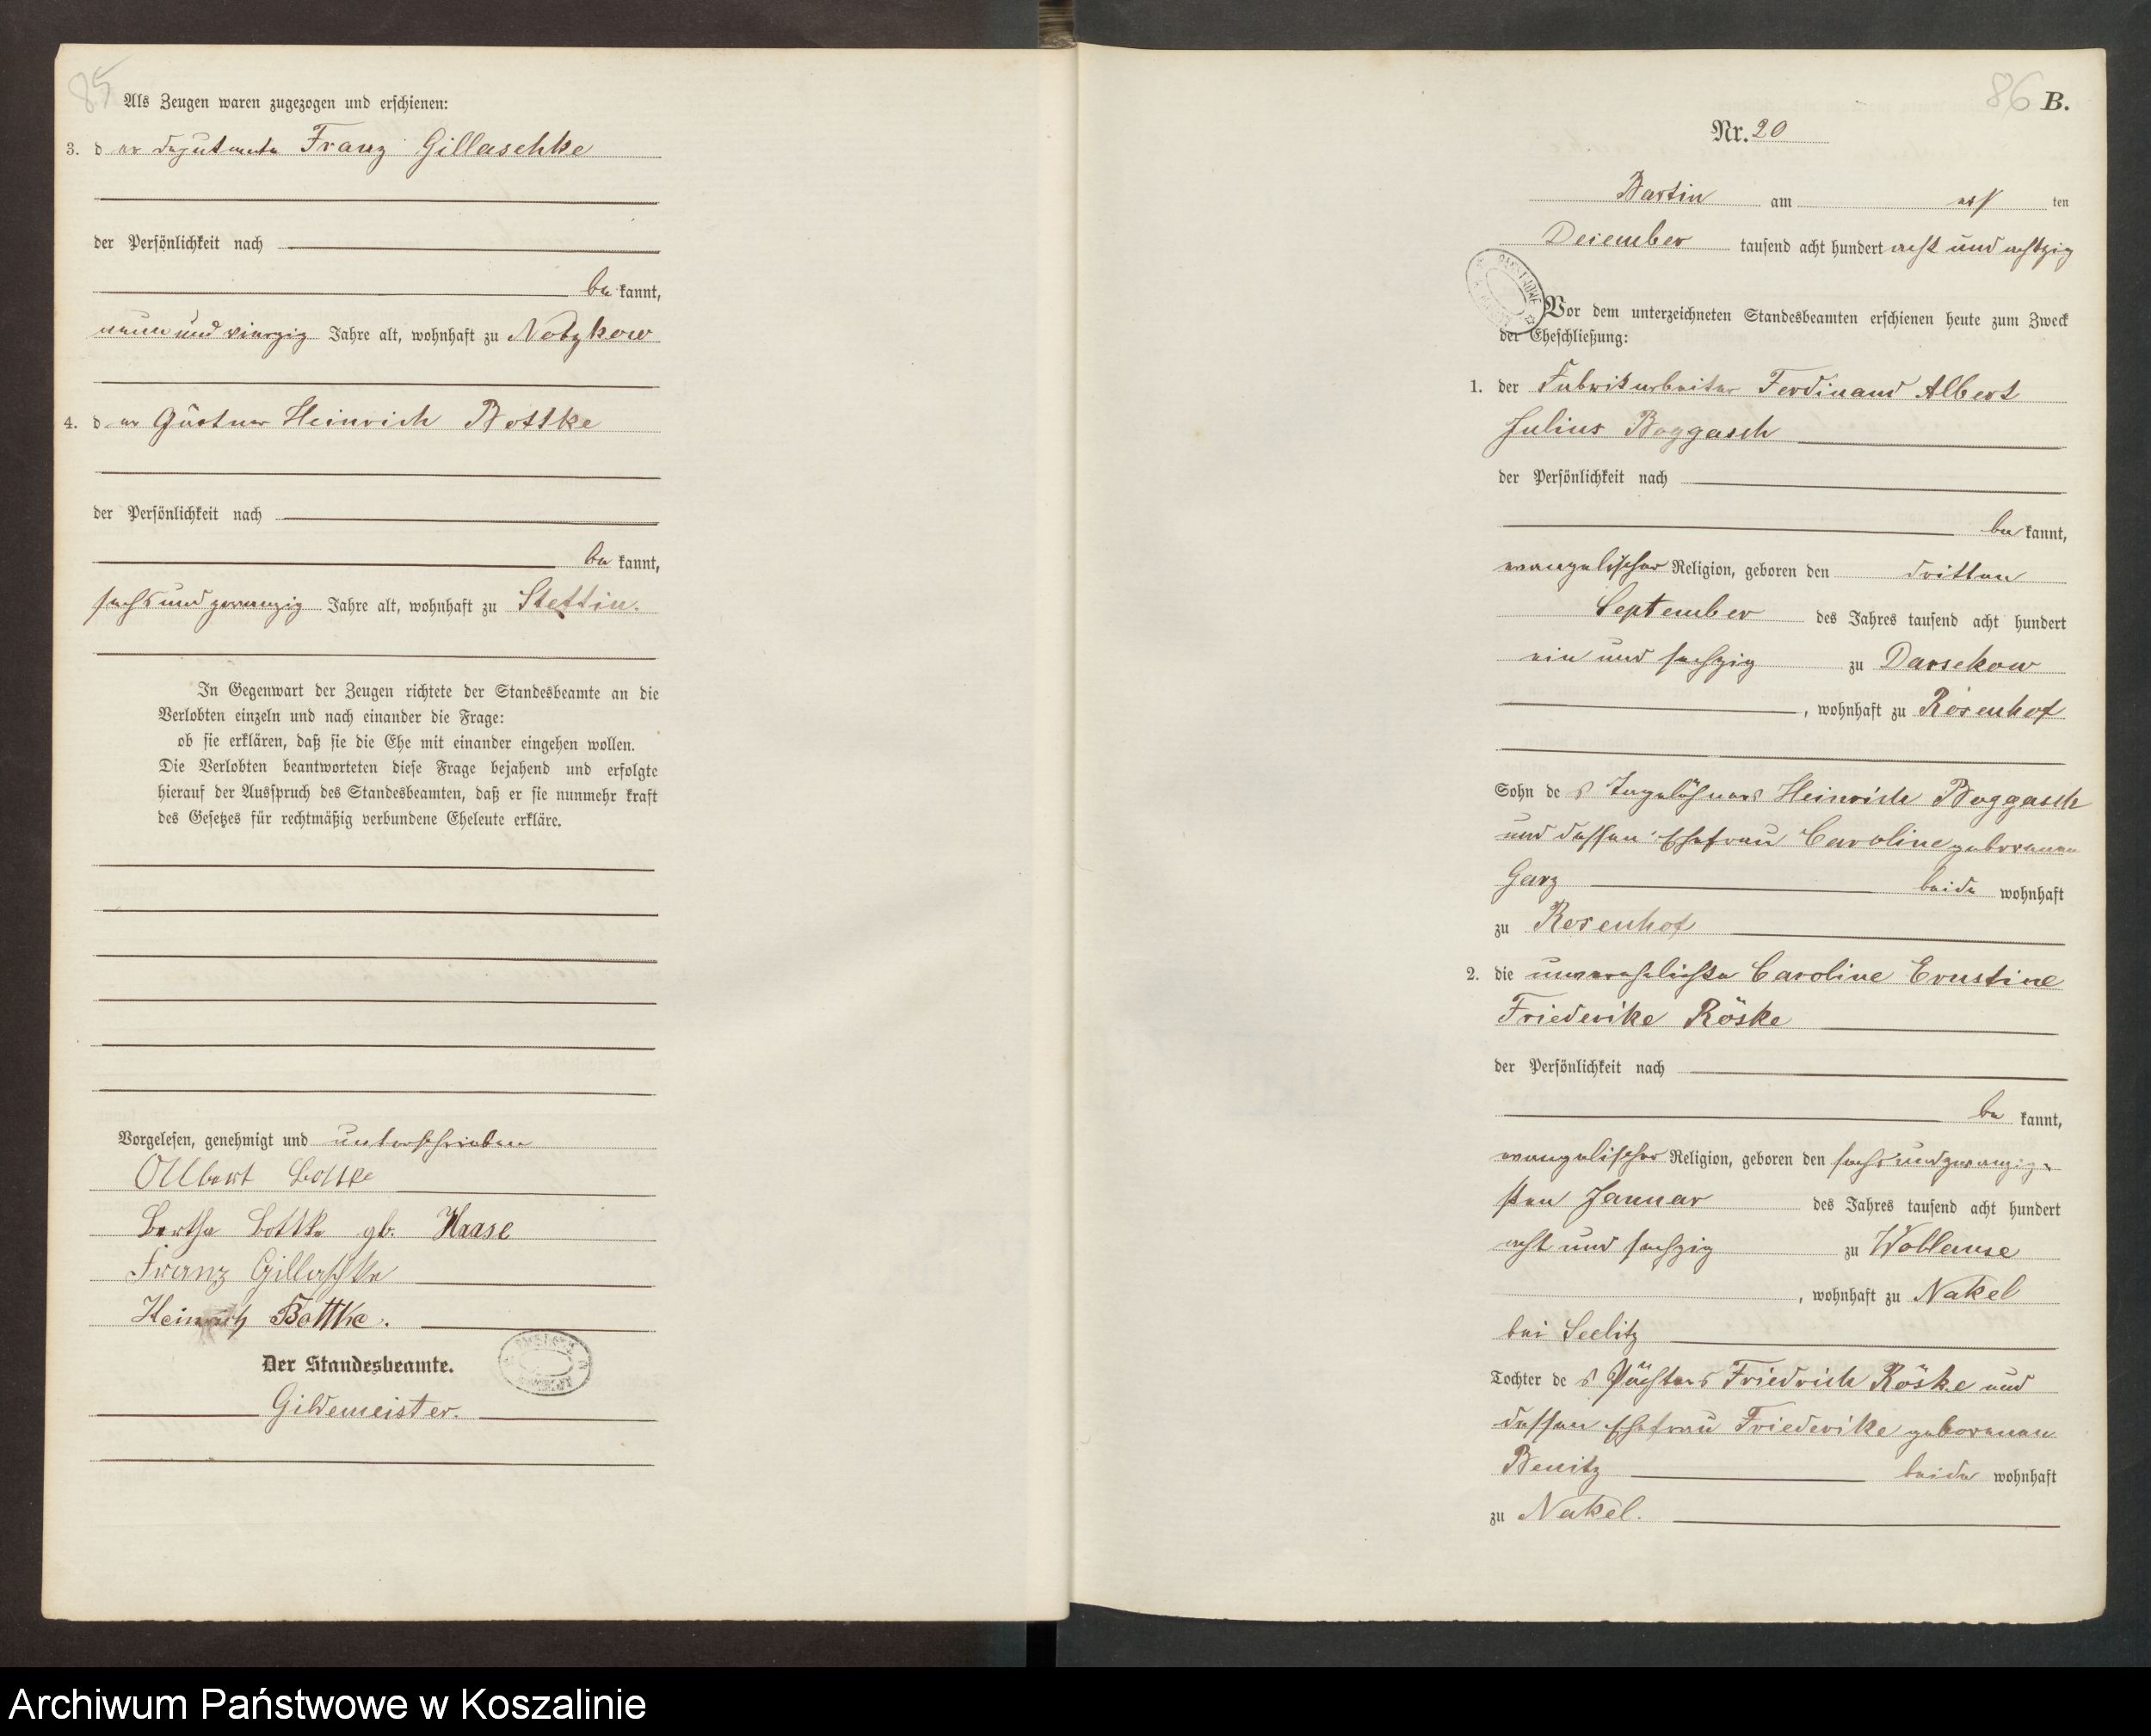 85
Als Zeugen waren zugezogen und erschienen:
3. der Deputante Franz Gillaschke
der Persönlichkeit nach
bekannt,
neun und vierzig Jahre alt, wohnhaft zu Notzkow
4. der Gärtner Heinrich Bottke
der Persönlichkeit nach
bekannt,
sechs und zwanzig Jahre alt, wohnhaft zu Stettin.
In Gegenwart der Zeugen richtete der Standesbeamte an die
Verlobten einzeln und nach einander die Frage:
ob sie erklären, daß sie die Ehe mit einander eingehen wollen.
Die Verlobten beantworteten diese Frage bejahend und erfolgte
hierauf der Ausspruch des Standesbeamten, daß er sie nunmehr kraft
des Gesetzes für rechtmäßig verbundene Eheleute erkläre.
Vorgelesen, genehmigt und unterschrieben
Albert Bottke
Bertha Bottke gb. Haase
Franz Gillaschke
Heinrich Bottke.
Der Standesbeamte.
Gildemeister.
86 B.
Nr. 20
Bartin am ten
Dezember tausend acht hundert acht und achtzig
Vor dem unterzeichneten Standesbeamten erschienen heute zum Zweck
der Eheschließung:
1. der Fabrikarbeiter Ferdinand Albert
Julius Boggasch
der Persönlichkeit nach
bekannt,
evangelischer Religion, geboren den dritten
September des Jahres tausend acht hundert
ein und sechzig zu Darsekow
, wohnhaft zu Rosenhof
Sohn des Tagelöhners Heinrich Boggasch
und dessen Ehefrau Caroline geborenen
Garz beide wohnhaft
zu Rosenhof
2. die unverehelichte Caroline Ernstine
Friederike Röske
der Persönlichkeit nach
bekannt,
evangelischer Religion, geboren den sechs und zwanzig-
sten Januar des Jahres tausend acht hundert
acht und sechzig zu Woblanse
, wohnhaft zu Nakel
bei Seelitz
Tochter des Pächters Friedrich Röske und
dessen Ehefrau Friederike geborenen
Benitz beide wohnhaft
zu Nakel.
Archiwum Państwowe w Koszalinie